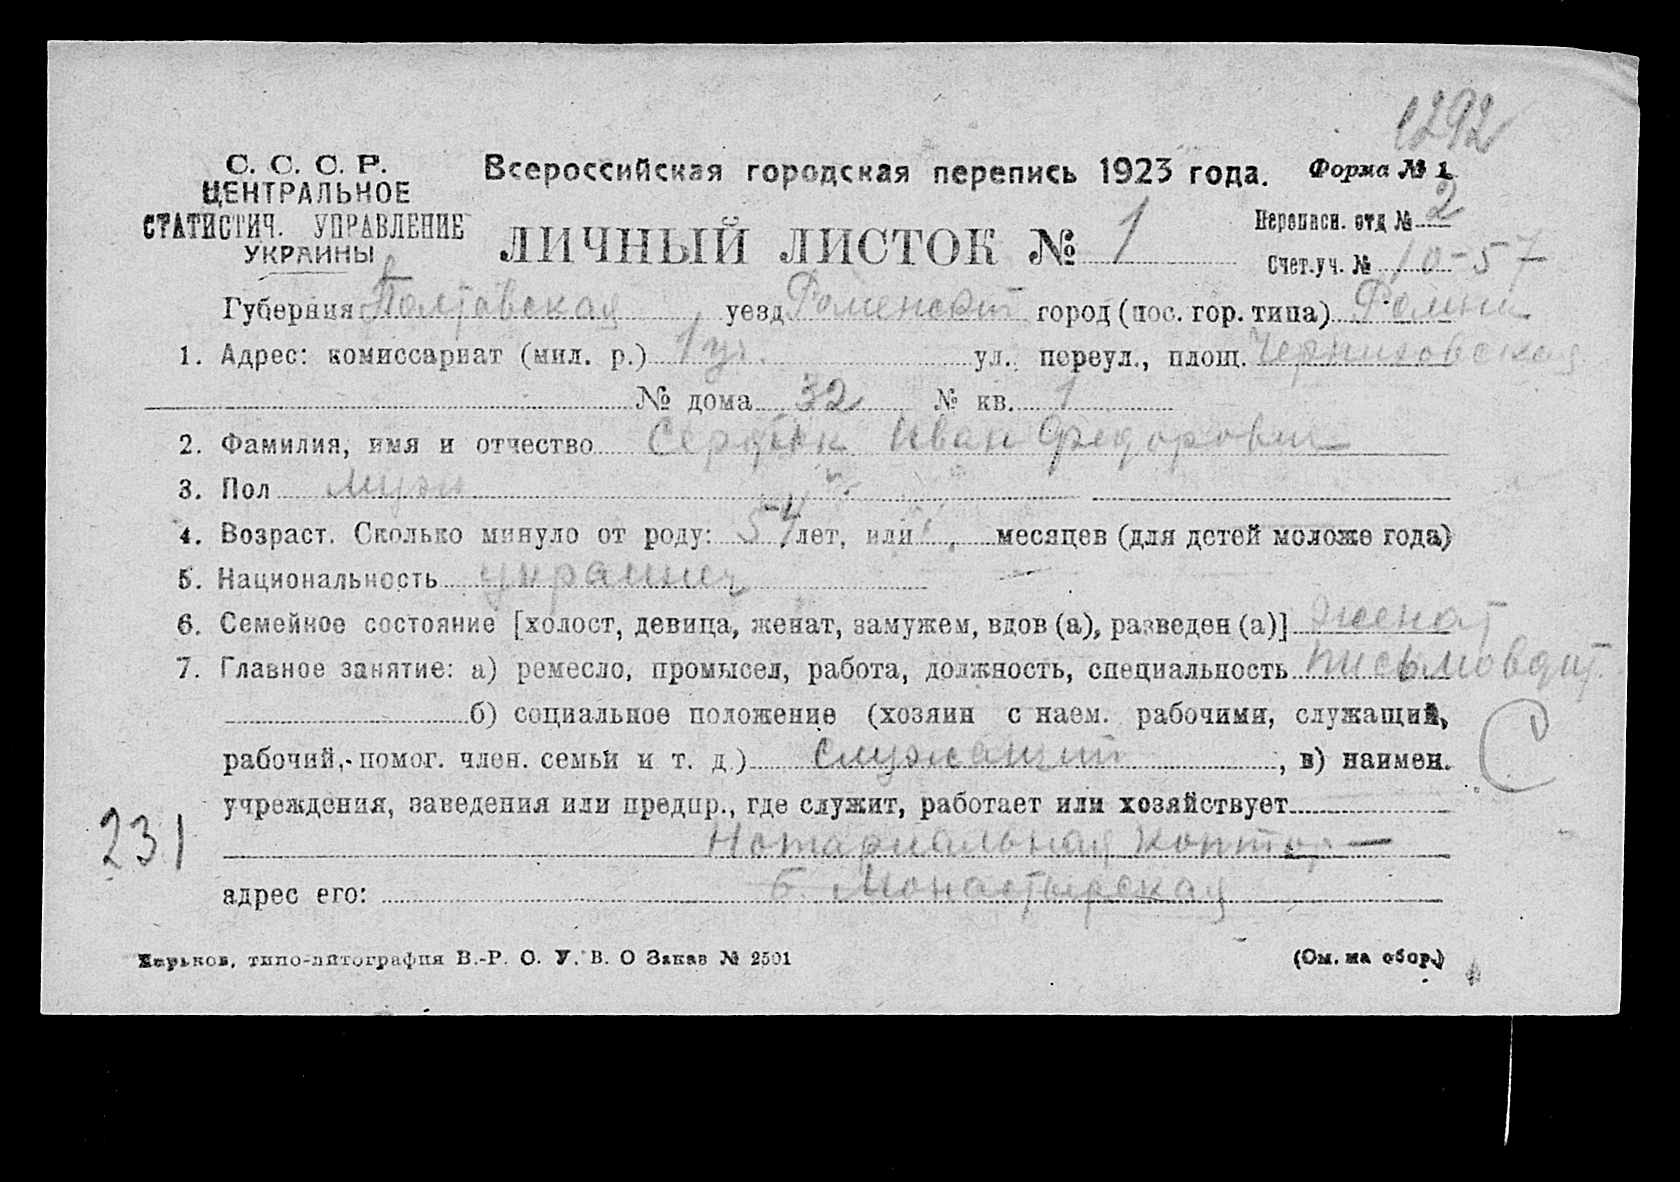 1292
С. С. С. Р.
ЦЕНТРАЛЬНОЕ
СТАТИСТИЧ. УПРАВЛЕНИЕ
УКРАИНЫ
Всероссийская городская перепись 1923 года.
Форма № 1
ЛИЧНЫЙ ЛИСТОК № 1
Переписн. отд № 2
Счет.уч. № 10-57
Губерния Полтавская уезд Роменский город (пос. гор. типа) Ромны
1. Адрес: комиссариат (мил. р.) 1 уч. ул., переул., площ. Черниховская
№ дома 32 № кв. 1
2. Фамилия, имя и отчество Сердюк Иван Федорович
3. Пол муж
4. Возраст. Сколько минуло от роду: 54 лет, или месяцев (для детей моложе года)
5. Национальность украинец
6. Семейное состояние [холост, девица, женат, замужем, вдов (а), разведен (а)] женат
7. Главное занятие: а) ремесло, промысел, работа, должность, специальность письмовдит.
б) социальное положение (хозяин с наем. рабочими, служащий,
рабочий, помог. член. семьи и т. д.) служащий, в) наимен.
С
учреждения, заведения или предпр., где служит, работает или хозяйствует
231
Нотариальная контор
адрес его: Б. Монастырская
Харьков, типо-литография В.-Р. О. У. В. О Заказ № 2501
(См. на обор.)